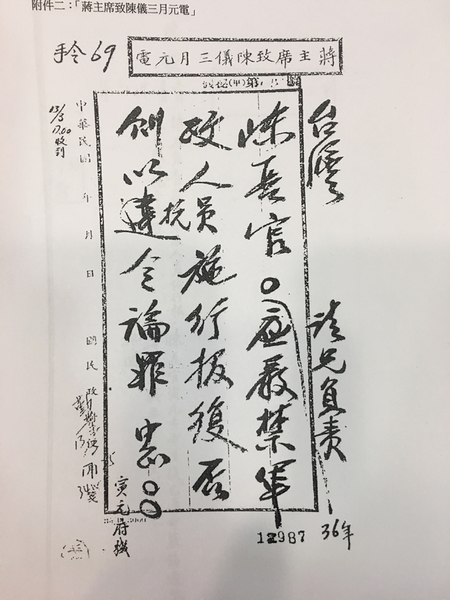 附件二：「蔣主席致陳儀三月元電」
手令69
蔣主席致陳儀三月元電
台灣
陳長官。請兄負責應嚴禁軍
政人員施行報復否
則以違抗令論罪 中正。
寅元府機
13/3
17.00
收到
中華民國 年 月 日
國民政府
12987
36年